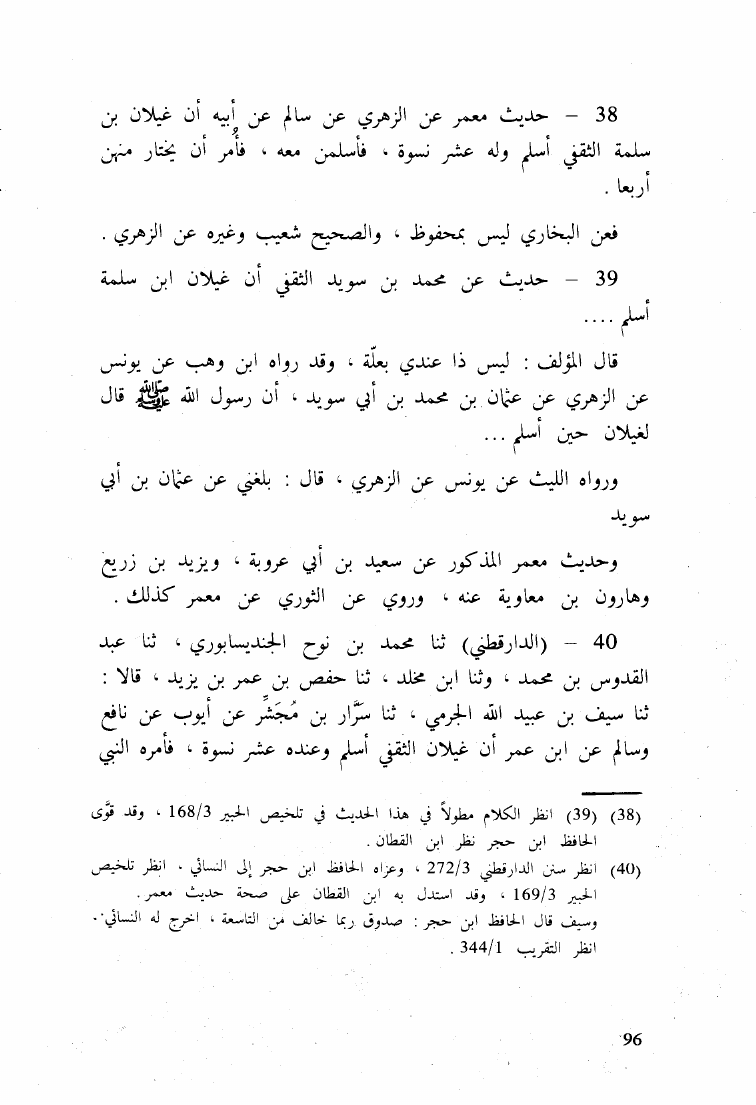 38 – حديث معمر عن الزهري عن سالم عن أبيه أن غيلان بن
سلمة الثقفي أسلم وله عشر نسوة ، فأسلمن معه ، فأُمر أن يختار منهن
أربعا .
فعن البخاري ليس بمحفوظ ، والصحيح شعيب وغيره عن الزهري .
39 – حديث عن محمد بن سويد الثقفي أن غيلان ابن سلمة
أسلم ....
قال المؤلف : ليس ذا عندي بعلّة ، وقد رواه ابن وهب عن يونس
عن الزهري عن عثمان بن محمد بن أبي سويد ، أن رسول الله ﷺ قال
لغيلان حين أسلم ...
ورواه الليث عن يونس عن الزهري ، قال : بلغني عن عثمان بن أبي
سويد
وحديث معمر المذكور عن سعيد بن أبي عروبة ، ويزيد بن زريع
وهارون بن معاوية عنه ، وروي عن الثوري عن معمر كذلك .
40 – (الدارقطني) ثنا محمد بن نوح الجنديسابوري ، ثنا عبد
القدوس بن محمد ، وثنا ابن مخلد ، ثنا حفص بن عمر بن يزيد ، قالا :
ثنا سيف بن عبيد الله الجرمي ، ثنا سَرَّار بن مُجَشِّر عن أيوب عن نافع
وسالم عن ابن عمر أن غيلان الثقفي أسلم وعنده عشر نسوة ، فأمره النبي
(38) (39) انظر الكلام مطولاً في هذا الحديث في تلخيص الحبير 168/3 ، وقد قوّى
الحافظ ابن حجر نظر ابن القطان .
(40) انظر سنن الدارقطني 272/3 ، وعزاه الحافظ ابن حجر إلى النسائي . انظر تلخيص
الحبير 169/3 ، وقد استدل به ابن القطان على صحة حديث معمر .
وسيف قال الحافظ ابن حجر : صدوق ربما خالف من التاسعة ، اخرج له النسائي .
انظر التقريب 344/1 .
96